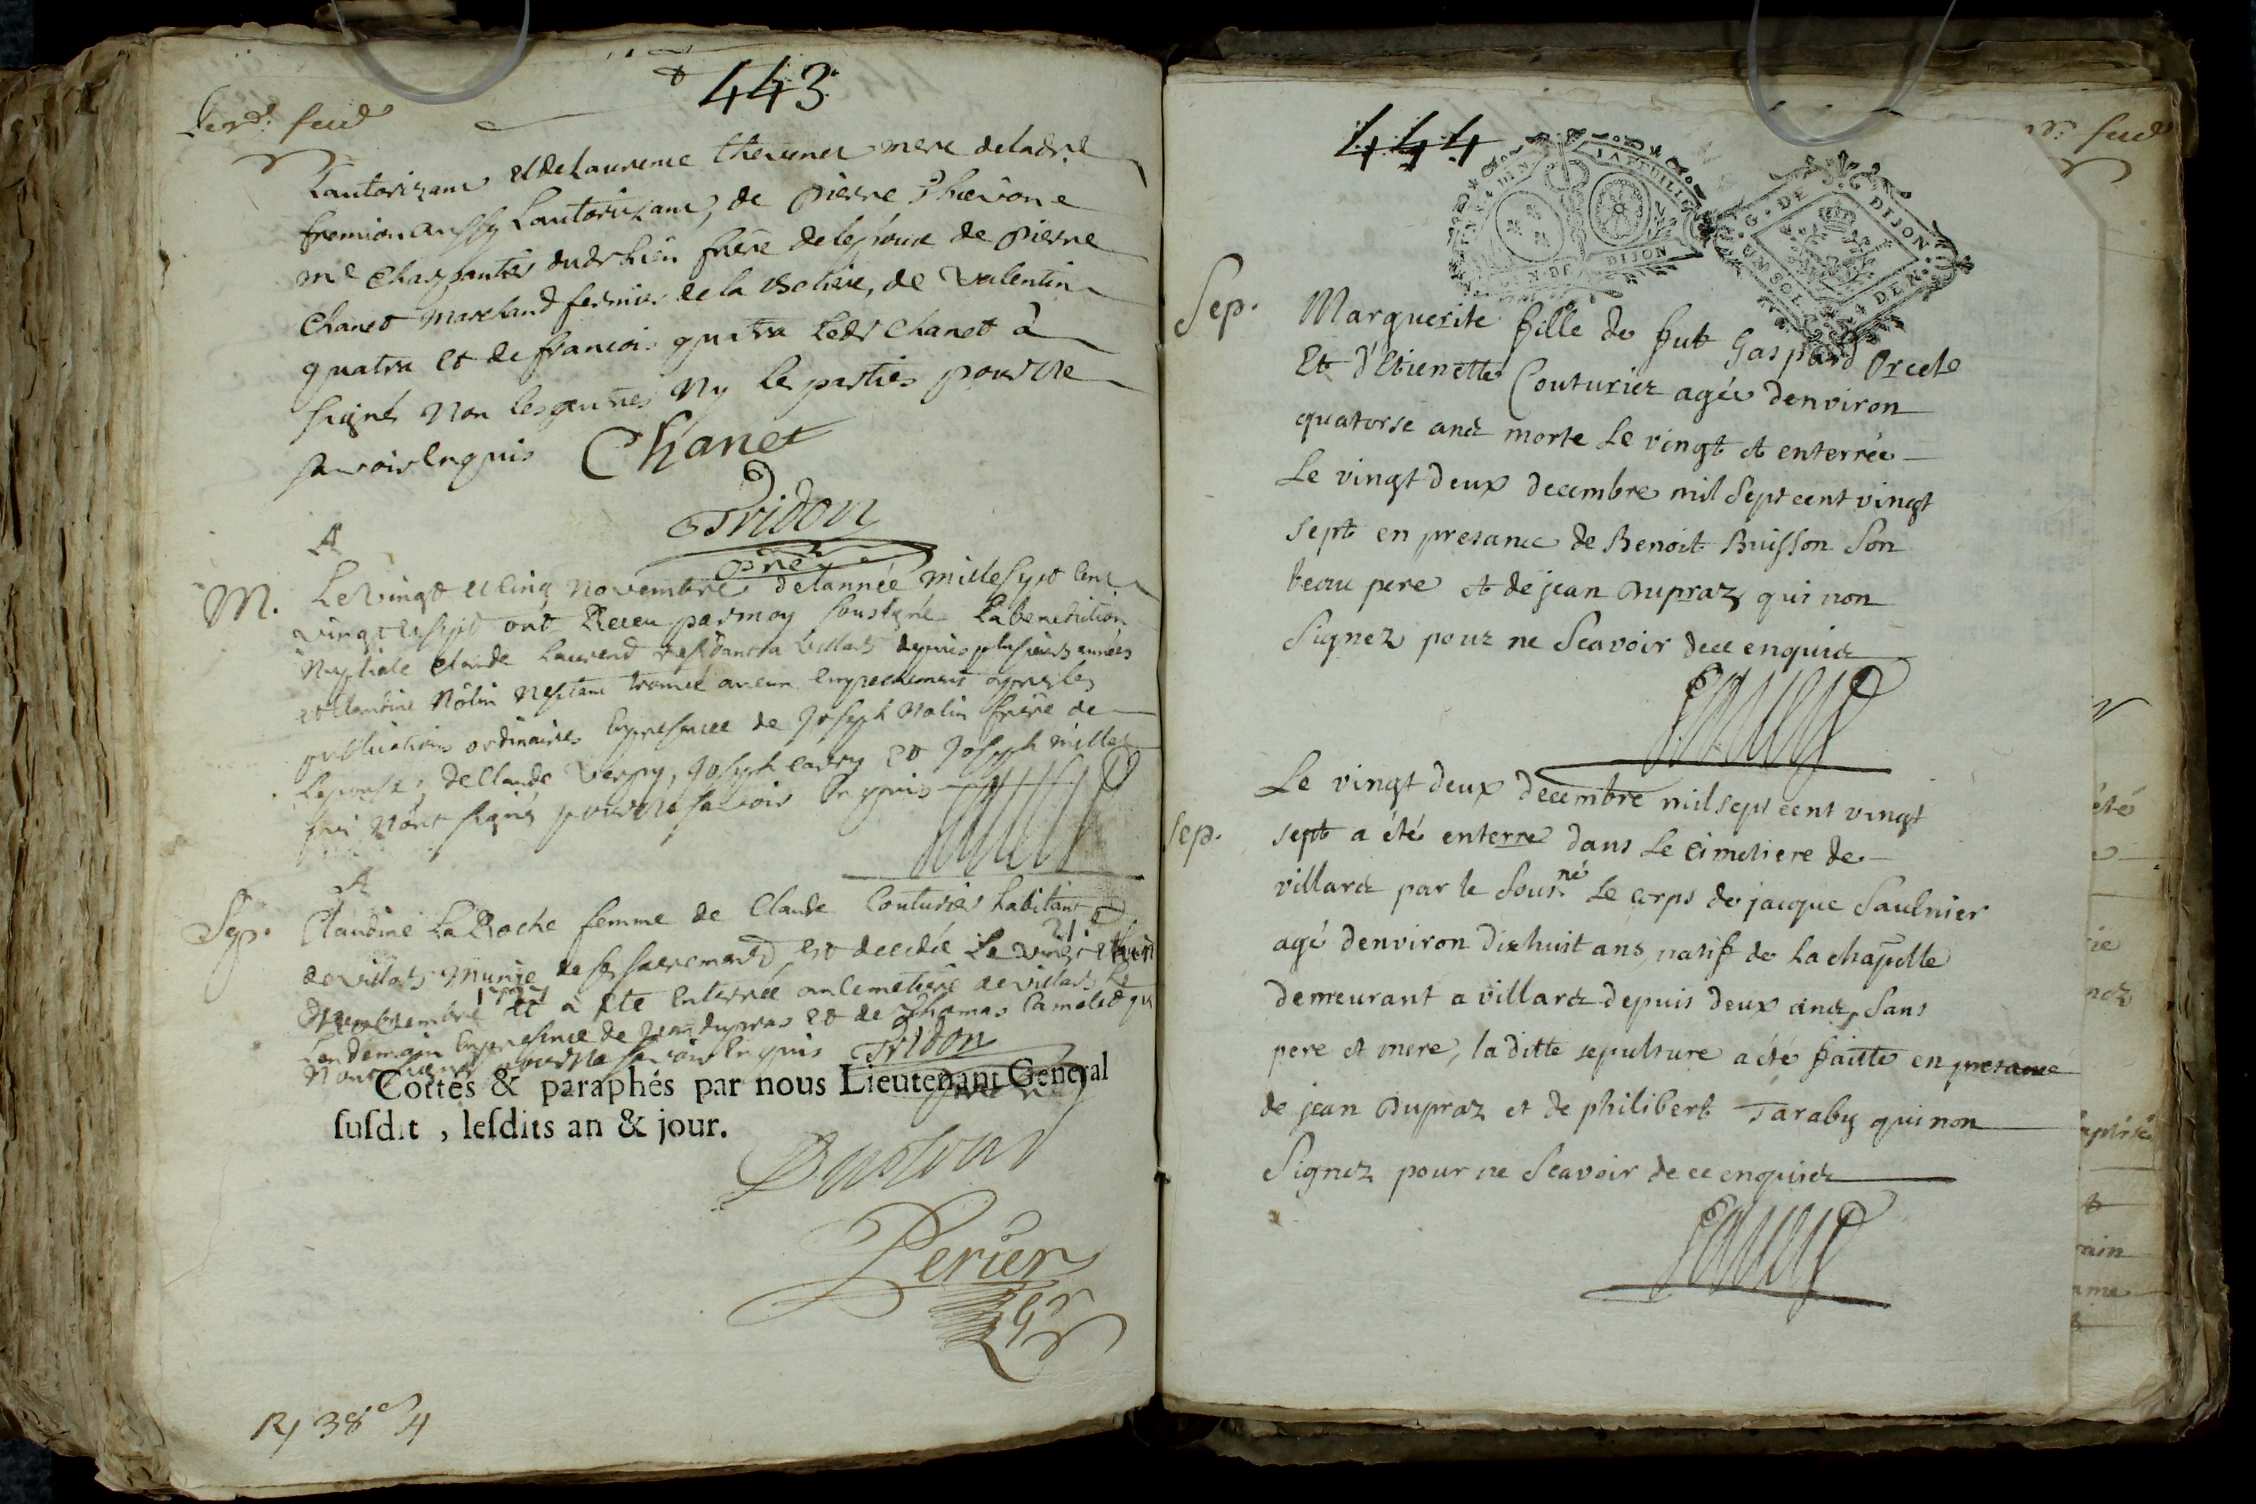 443
Lautorizant et de Laurence thevenet mere deladte
fremion aussy Lautorizant, de pierre
me Charpantier dudt lieu frere de lepouse de pierre
Chanet marchand fermier de la, de valentin
quatra et de francois quatra Ledt Chanet à
signé non les autres Ny le parties pour ne
savoir Enquis
Chanet
Tridon
pre
M.
Le vingt et cinq novembre delannée mille sept cent
vingt et sept ont Receu par moy soussigné La benediction
Nuptiale Claude Laurend residant a villars depuis plusieurs années
et Claudine Nolin Nestant trouvé aucun Empechement apres les
publications ordinaires En presence de Joseph Nolin frere de
Lepouse, de Claude, Joseph et Joseph millet
qui N'ont signés pour ne savoir Enquis
Sep.
Claudine La Roche femme de Claude Couturier habitant
21
de villars munie de ses sacremens est decedée Le vingt et
et a ete Enterrée au Cemetiere de villars Le
Lendemain En presence de Jean dupras et de Thomas qui
N'ont signés pour ne savoir Enquis
Tridon
pre
Cottés & paraphés par nous Lieutenant General
susdit, lesdits an & jour.
Perier
R 38
444
G. DE DIJON
DEN.
LA FEUILLE
DIJON
Sep.
Marguerite fille de fut Gaspard Orcel
Et d'Etienette Couturier agée denviron
quatorse ans morte Le vingt et enterrée
Le vingt deux decembre mil sept cent vingt
sept en presance de Benoit Buisson son
beau pere et de jean Dupraz qui non
Signez pour ne Scavoir dece enquis
Sep.
Le vingt deux decembre mil sept cent vingt
sept a été enterre dans Le cimetiere de
villars par le Sousné Le corps de jacque Saulnier
agé denviron dixhuit ans natif de La chapelle
demeurant a villars depuis deux ans, Sans
pere et mere, la ditte sepulture a été faitte en presance
de jean Dupraz et de philibert Taraby qui non
Signez pour ne Scavoir de ce enquis